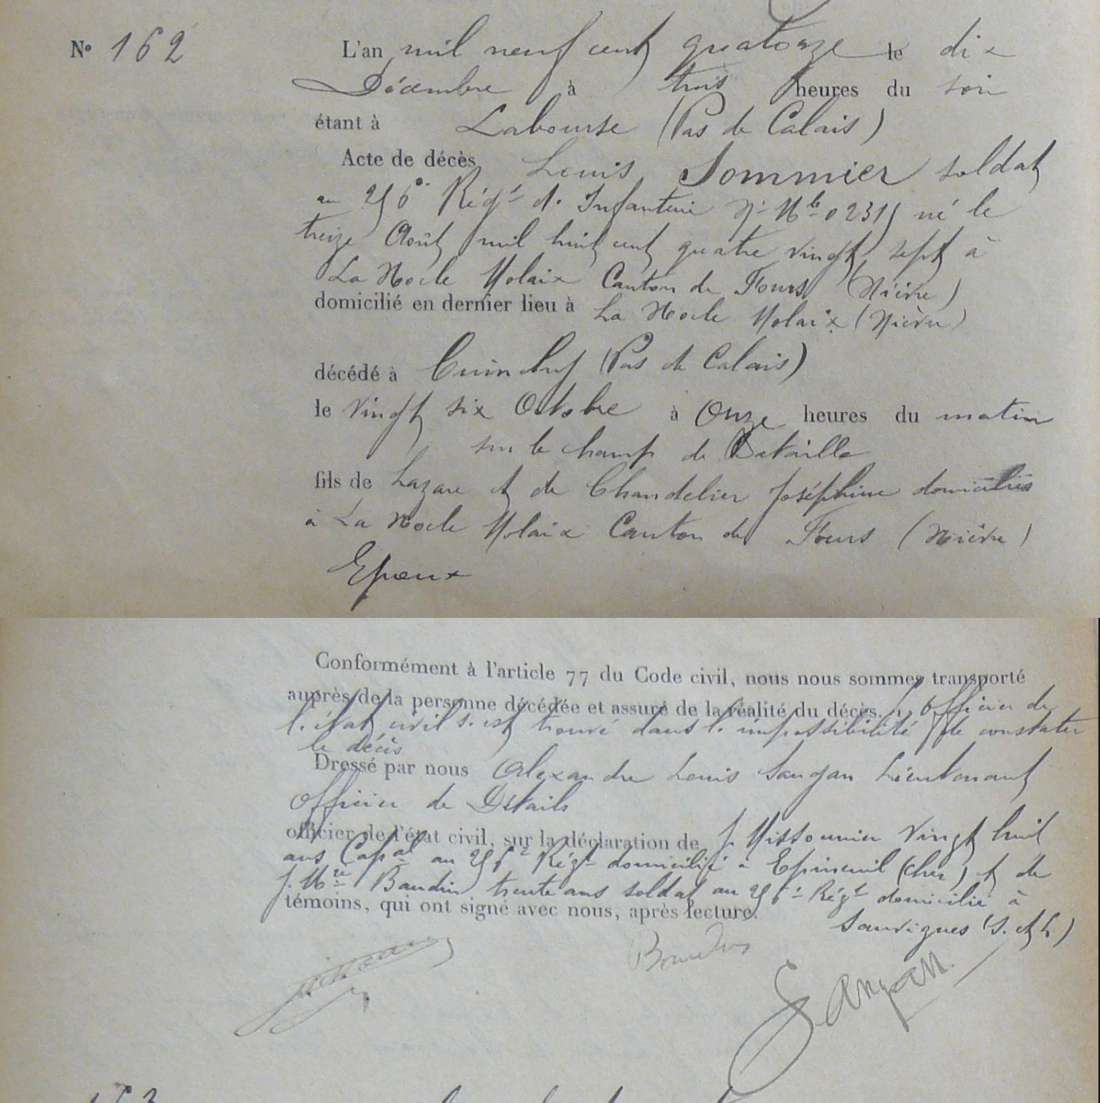 N° 162
L'an mil neuf cent quatorze le dix
Décembre à trois heures du soir
étant à Labourse (Pas de Calais)
Acte de décès Louis Sommier soldat
au 256e Régt d'Infanterie N° Mle 02315 né le
treize Août mil huit cent quatre vingt sept à
La Nocle Molaix Canton de Fours (Nièvre)
domicilié en dernier lieu à La Nocle Molaix (Nièvre)
décédé à Cuinchy (Pas de Calais)
le vingt six Octobre à Onze heures du matin
sur le champ de Bataille
fils de Lazare et de Chandelier Joséphine domiciliés
à La Nocle Molaix Canton de Fours (Nièvre)
Epoux
Conformément à l'article 77 du Code civil, nous nous sommes transporté
auprès de la personne décédée et assuré de la réalité du décès. L'officier de
l'état civil s'est trouvé dans l'impossibilité de constater
le décès
Dressé par nous Alexandre Louis Lieutenant
officier de Détails
officier de l'état civil, sur la déclaration de J. Missonnier Vingt huit
ans Capal au 256e Régt domicilié à Epineuil (Cher) et de
J. Mie Baudin trente ans soldat au 256e Régt domicilié à
témoins, qui ont signé avec nous, après lecture. Sanvignes (S. et L)
Baudin
163